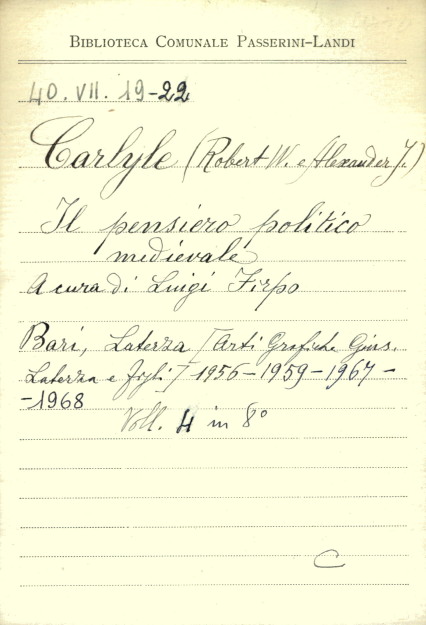 BIBLIOTECA COMUNALE PASSERINI-LANDI
40. VII. 19-22
Carlyle (Robert W. e Alexander J.)
Il pensiero politico
medievale
A cura di Luigi Firpo
Bari, Laterza [Arti Grafiche Gius.
Laterza e Figli] 1956-1959-1967-
-1968
Voll. 4 in 8°
C